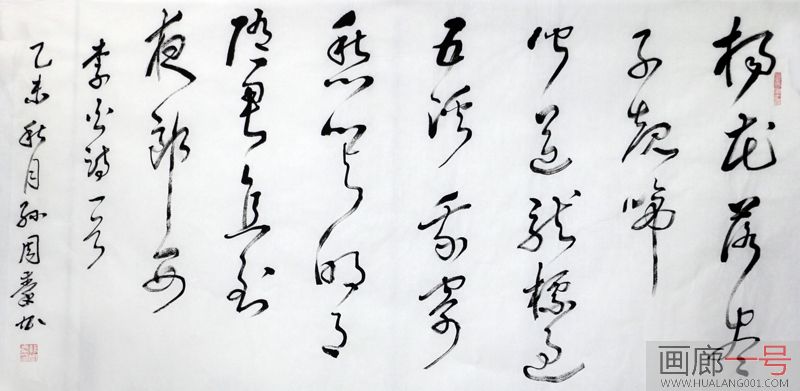 杨花落尽
子规啼
闻道龙标过
五溪我寄
愁心与明月
随君直到
夜郎西
李白诗一首
乙未秋月孙周书
画廊一号
WWW.HUALANG001.COM